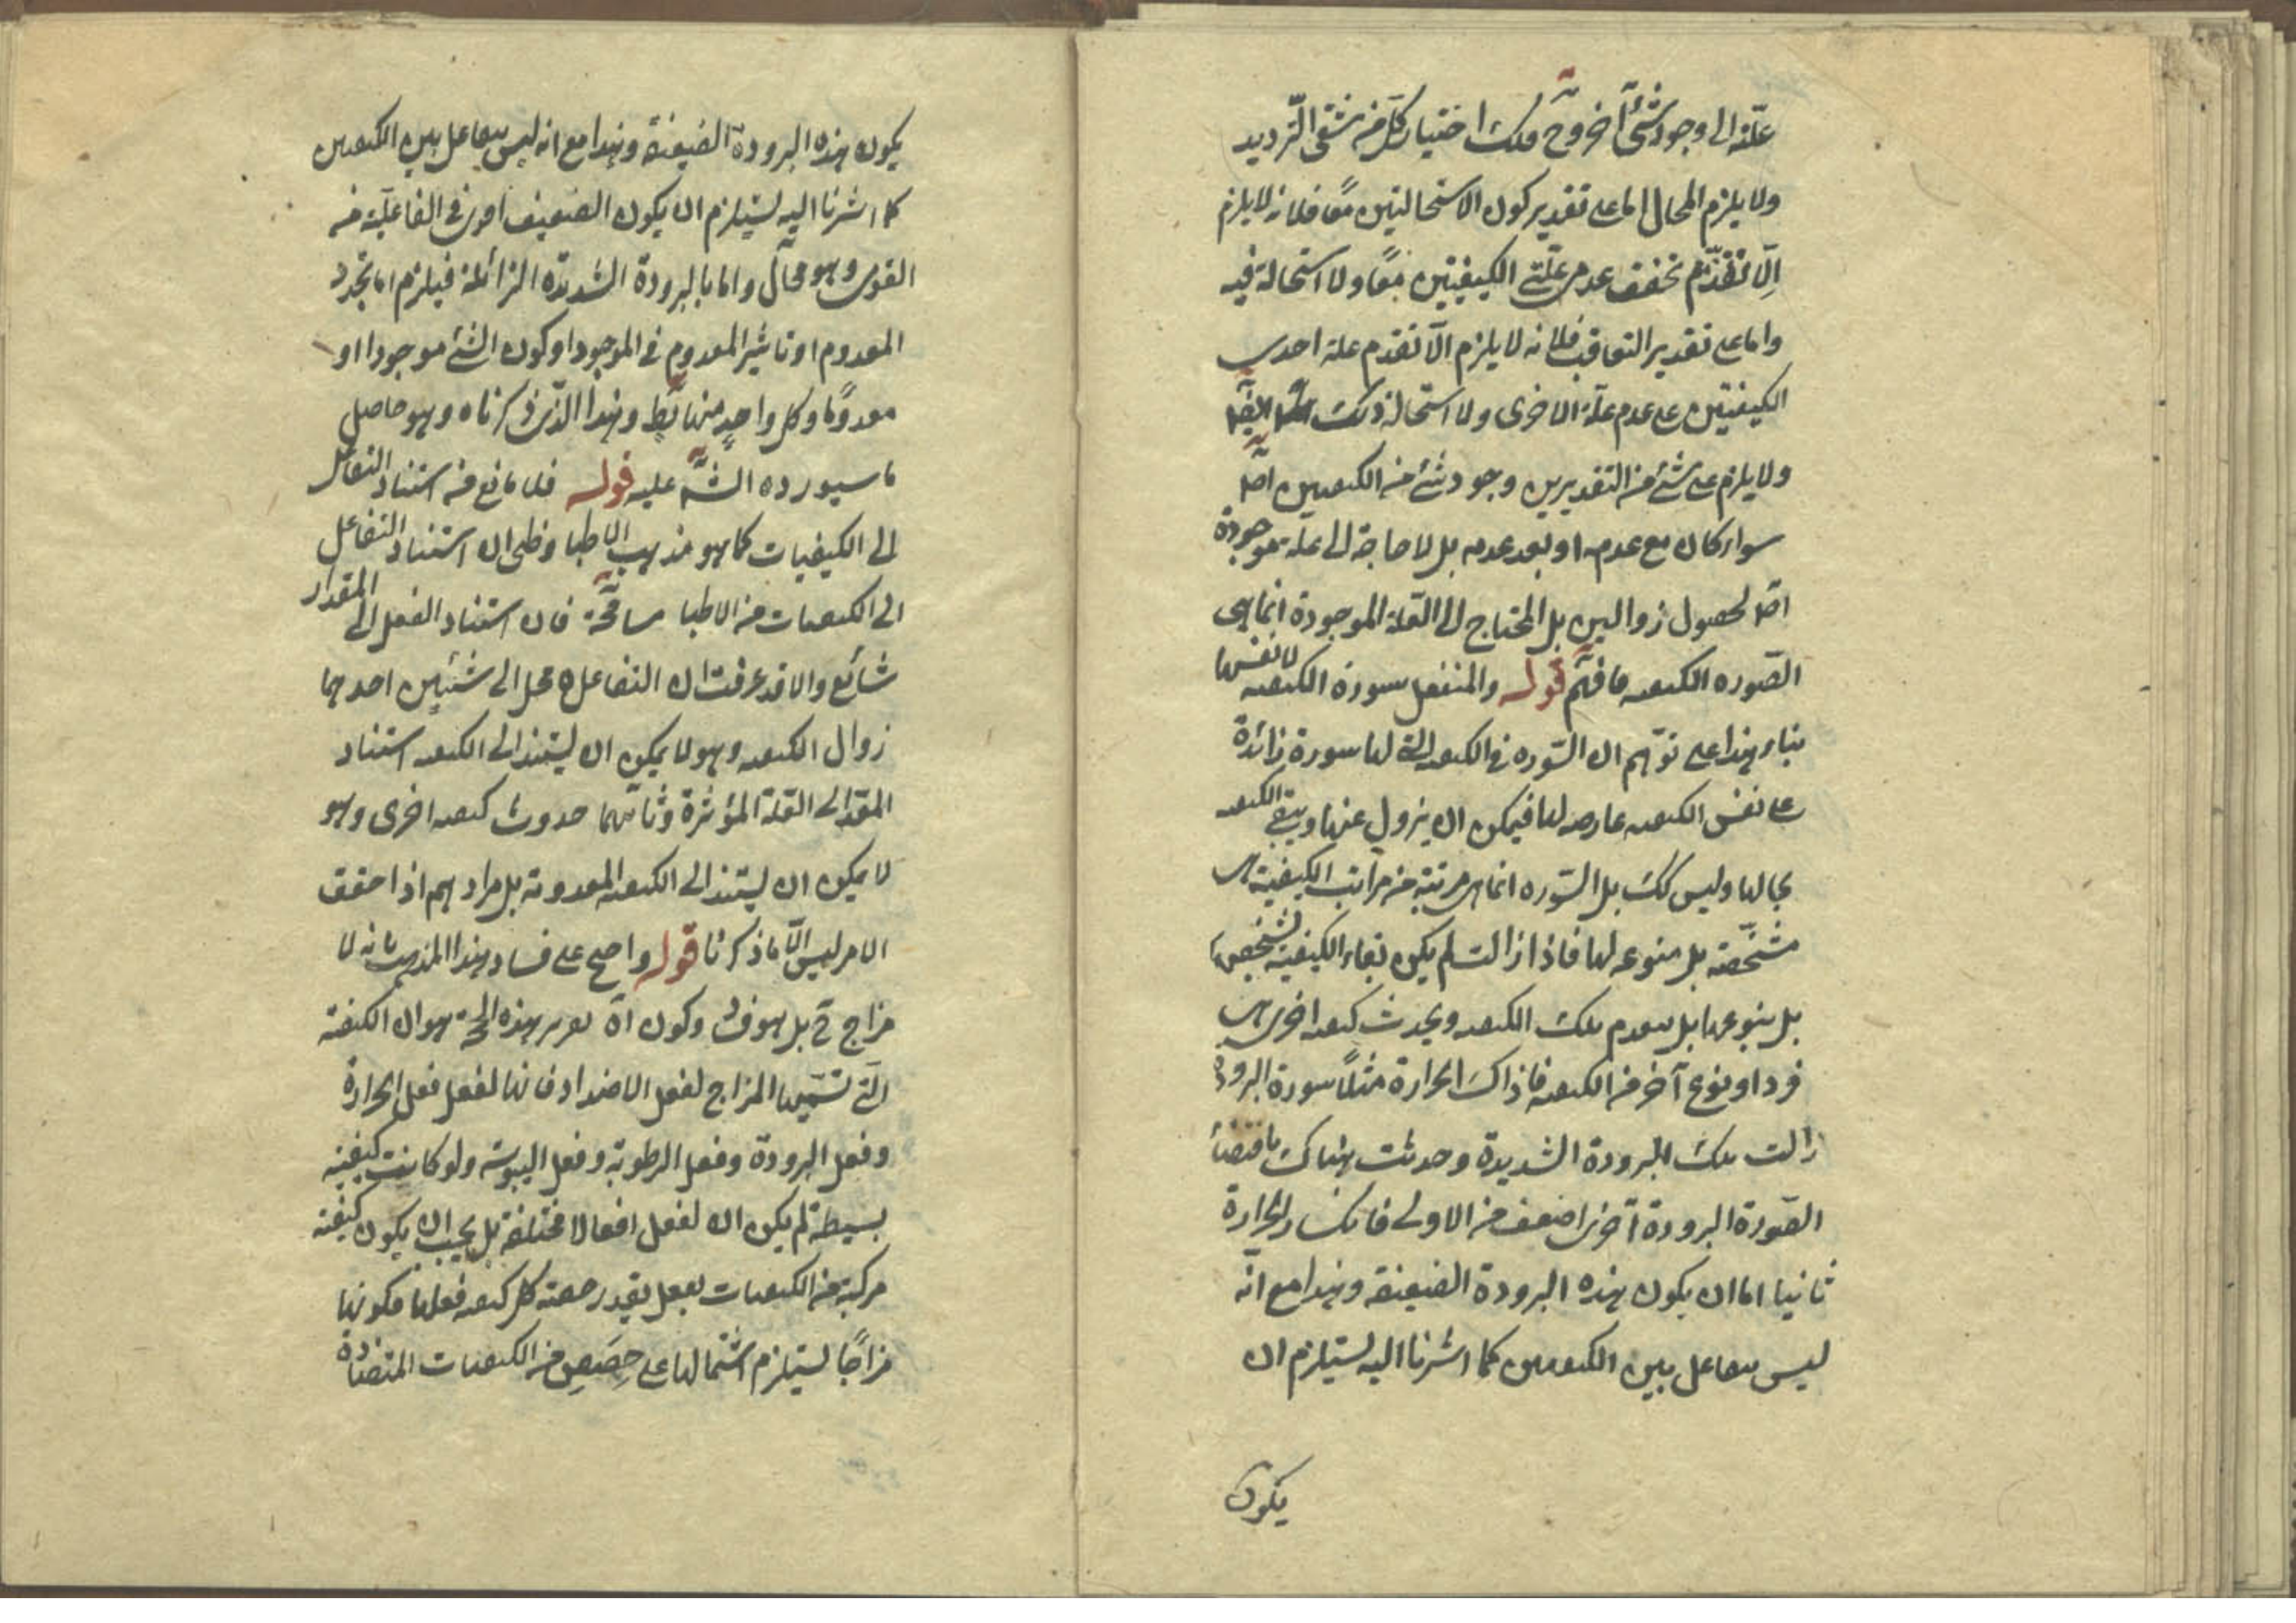 علته الى وجود شئ آخر وح فلك اختيار كل من شقى الترديد
ولا يلزم المحال اما على تقدير كون الاستحالتين معًا فلانه لا يلزم
الّا تقدّم تحقق عدم علّتى الكيفيتين معًا ولا استحالة فيه
واما على تقدير التعاقب فلانه لا يلزم الّا تقدم علة احدى
الكيفيتين على عدم علة الاخرى ولا استحالة ذلك ايضا
ولا يلزم على شئ من التقديرين وجود شئ من الكيفيتين اصلا
سواء كان مع عدمه او بعد عدمه بل لا حاجة الى علة موجودة
اصلا لحصول زوالين بل المحتاج الى العلة الموجودة انما هى
الصّوره الكيفيه فافهم قوله والمنفعل سورة الكيفيه لا نفسها
بناء هذا على توهّم ان السّوره فى الكيفيه التى لها سورة زائدة
على نفس الكيفيه عارضه لها فيمكن ان يزول عنها ويبقى الكيفيه
بحالها وليس كك بل السّوره انما هى مرتبة من مراتب الكيفية
مشخّصة بل منوعه لها فاذا زالت لم يكن بقاء الكيفية بشخصها
بل بنوعها بل ينعدم تلك الكيفيه ويحدث كيفيه اخرى هى
فرد او نوع آخر من الكيفيه فاذا كسر الحرارة مثلًا سورة البرودة
زالت تلك البرودة الشديدة وحدثت هناك باقتضاء
الصّورة البرودة اخرى اضعف من الاولى فانكسار الحرارة
ثانيا اما ان يكون بهذه البرودة الضعيفة وهذا مع انّه
ليس بتفاعل بين الكيفيتين كما اشرنا اليه يستلزم ان
يكون
يكون هذه البرودة الضعيفة وهذا مع انه ليس بتفاعل بين الكيفيتين
كما اشرنا اليه يستلزم ان يكون الضعيف اقوى فى الفاعلية من
القوى وهو محال واما بالبرودة الشديدة الزائلة فيلزم اما تجدد
المعدوم او تاثير المعدوم فى الموجود او كون الشئ موجودا او
معدومًا وكل واحدٍ منها بط وهذا الذى ذكرناه وهو حاصل
ما سيورده الشه عليه قوله فلا مانع من استناد التفاعل
الى الكيفيات كما هو مذهب الاطبا وظنى ان استناد التفاعل
الى الكيفيات من الاطبا مسامحة فان استناد الفعل الى المقدار
شائع والا قد عرفت ان التفاعل ينحل الى شيئين احدهما
زوال الكيفيه وهو لا يمكن ان يستند الى الكيفيه استناد
المقدار الى العلة المؤثرة وثانيهما حدوث كيفيه اخرى وهو
لا يمكن ان يستند الى الكيفيه المعدومة بل مرادهم اذا حقق
الامر ليس الّا ما ذكرنا قوله واضح على فساد هذا المذهب بانه لا
مزاج ح بل هو فى وكون آه تقرير هذه الحجة هو ان الكيفية
التى تسمّيها المزاج لفعل الاضداد فانها لفعل فعل الحرارة
وفعل البرودة وفعل الرطوبة وفعل اليبوسة ولو كانت كيفية
بسيطة لم يكن ان لفعل افعالا مختلفة بل يجب ان يكون كيفية
مركبة من الكيفيات يفعل بقدر حصته كل كيفيه فعلها فكونها
مزاجًا يستلزم اشتمالها على حِصَصٍ من الكيفيات المتضادة